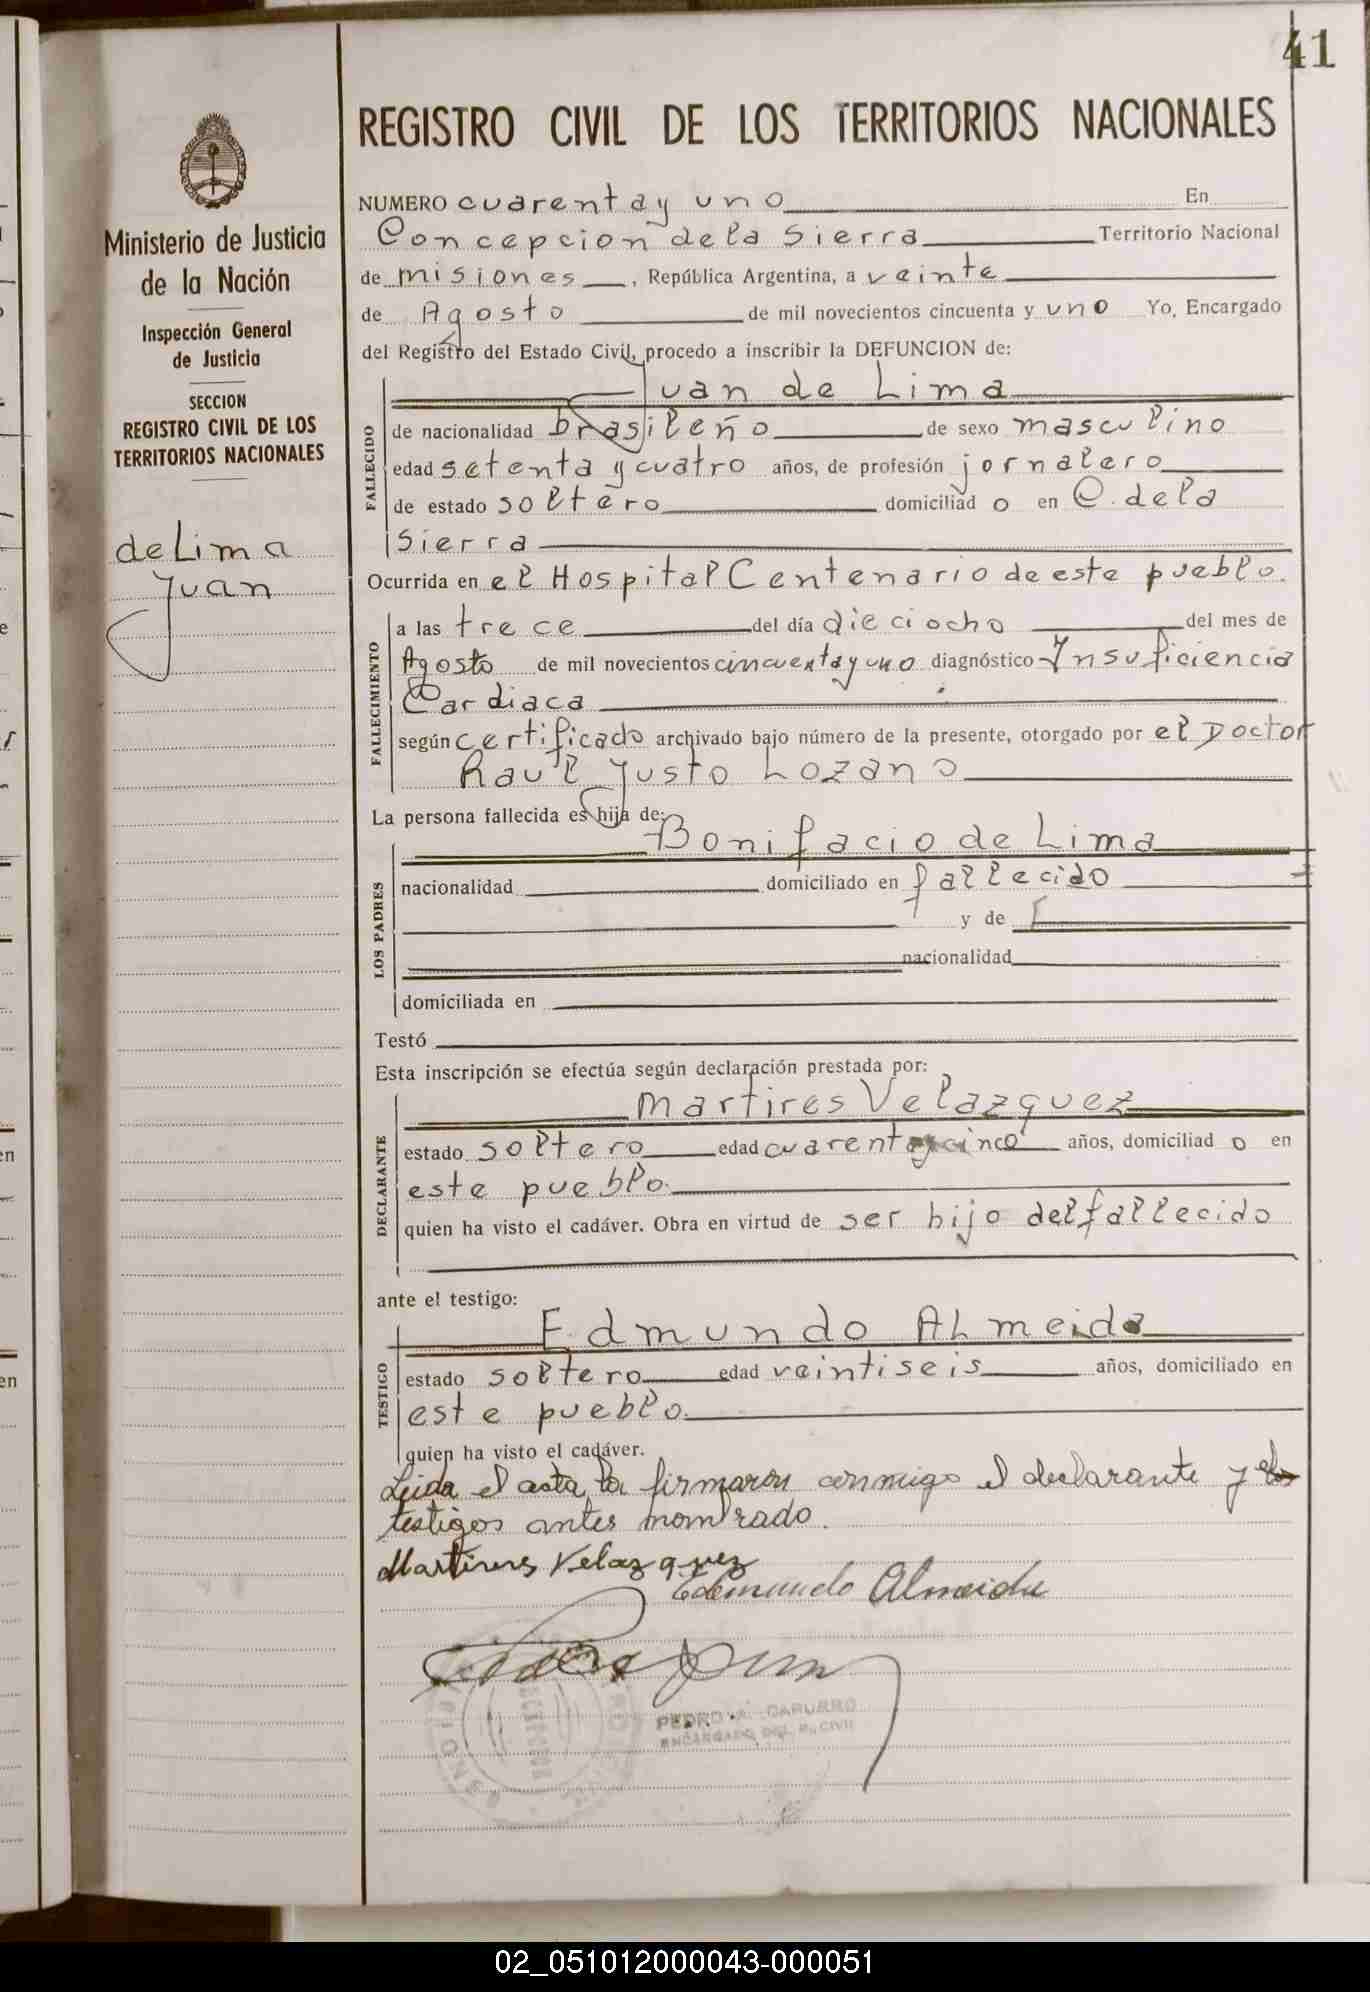 41
REGISTRO CIVIL DE LOS TERRITORIOS NACIONALES
Ministerio de Justicia
de la Nación
Inspección General
de Justicia
SECCION
REGISTRO CIVIL DE LOS
TERRITORIOS NACIONALES
de Lima
Juan
NUMERO cuarenta y uno En
Concepcion de la Sierra Territorio Nacional
de misiones, República Argentina, a veinte
de Agosto de mil novecientos cincuenta y uno Yo, Encargado
del Registro del Estado Civil, procedo a inscribir la DEFUNCION de:
FALLECIDO
Juan de Lima
de nacionalidad brasileño de sexo masculino
edad setenta y cuatro años, de profesión jornalero
de estado soltero domiciliad o en C. de la
Sierra
Ocurrida en el Hospital Centenario de este pueblo.
FALLECIMIENTO
a las trece del día dieciocho del mes de
Agosto de mil novecientos cincuenta y uno diagnóstico Insuficiencia
Cardiaca
según certificado archivado bajo número de la presente, otorgado por el Doctor
Raul Justo Lozano
La persona fallecida es hija de:
LOS PADRES
Bonifacio de Lima
nacionalidad domiciliado en fallecido
y de
nacionalidad
domiciliada en
Testó
Esta inscripción se efectúa según declaración prestada por:
DECLARANTE
Martires Velazquez
estado soltero edad cuarenta y cinco años, domiciliad o en
este pueblo.
quien ha visto el cadáver. Obra en virtud de ser hijo del fallecido
ante el testigo:
TESTIGO
Edmundo Almeida
estado soltero edad veintiseis años, domiciliado en
este pueblo.
quien ha visto el cadáver.
Leida el acta la firmaron conmigo el declarante y el
testigos antes nombrado.
Martires Velazquez
Edmundo Almeida
PEDRO A. CAPURRO
ENCARGADO DEL R. CIVIL
02_051012000043-000051